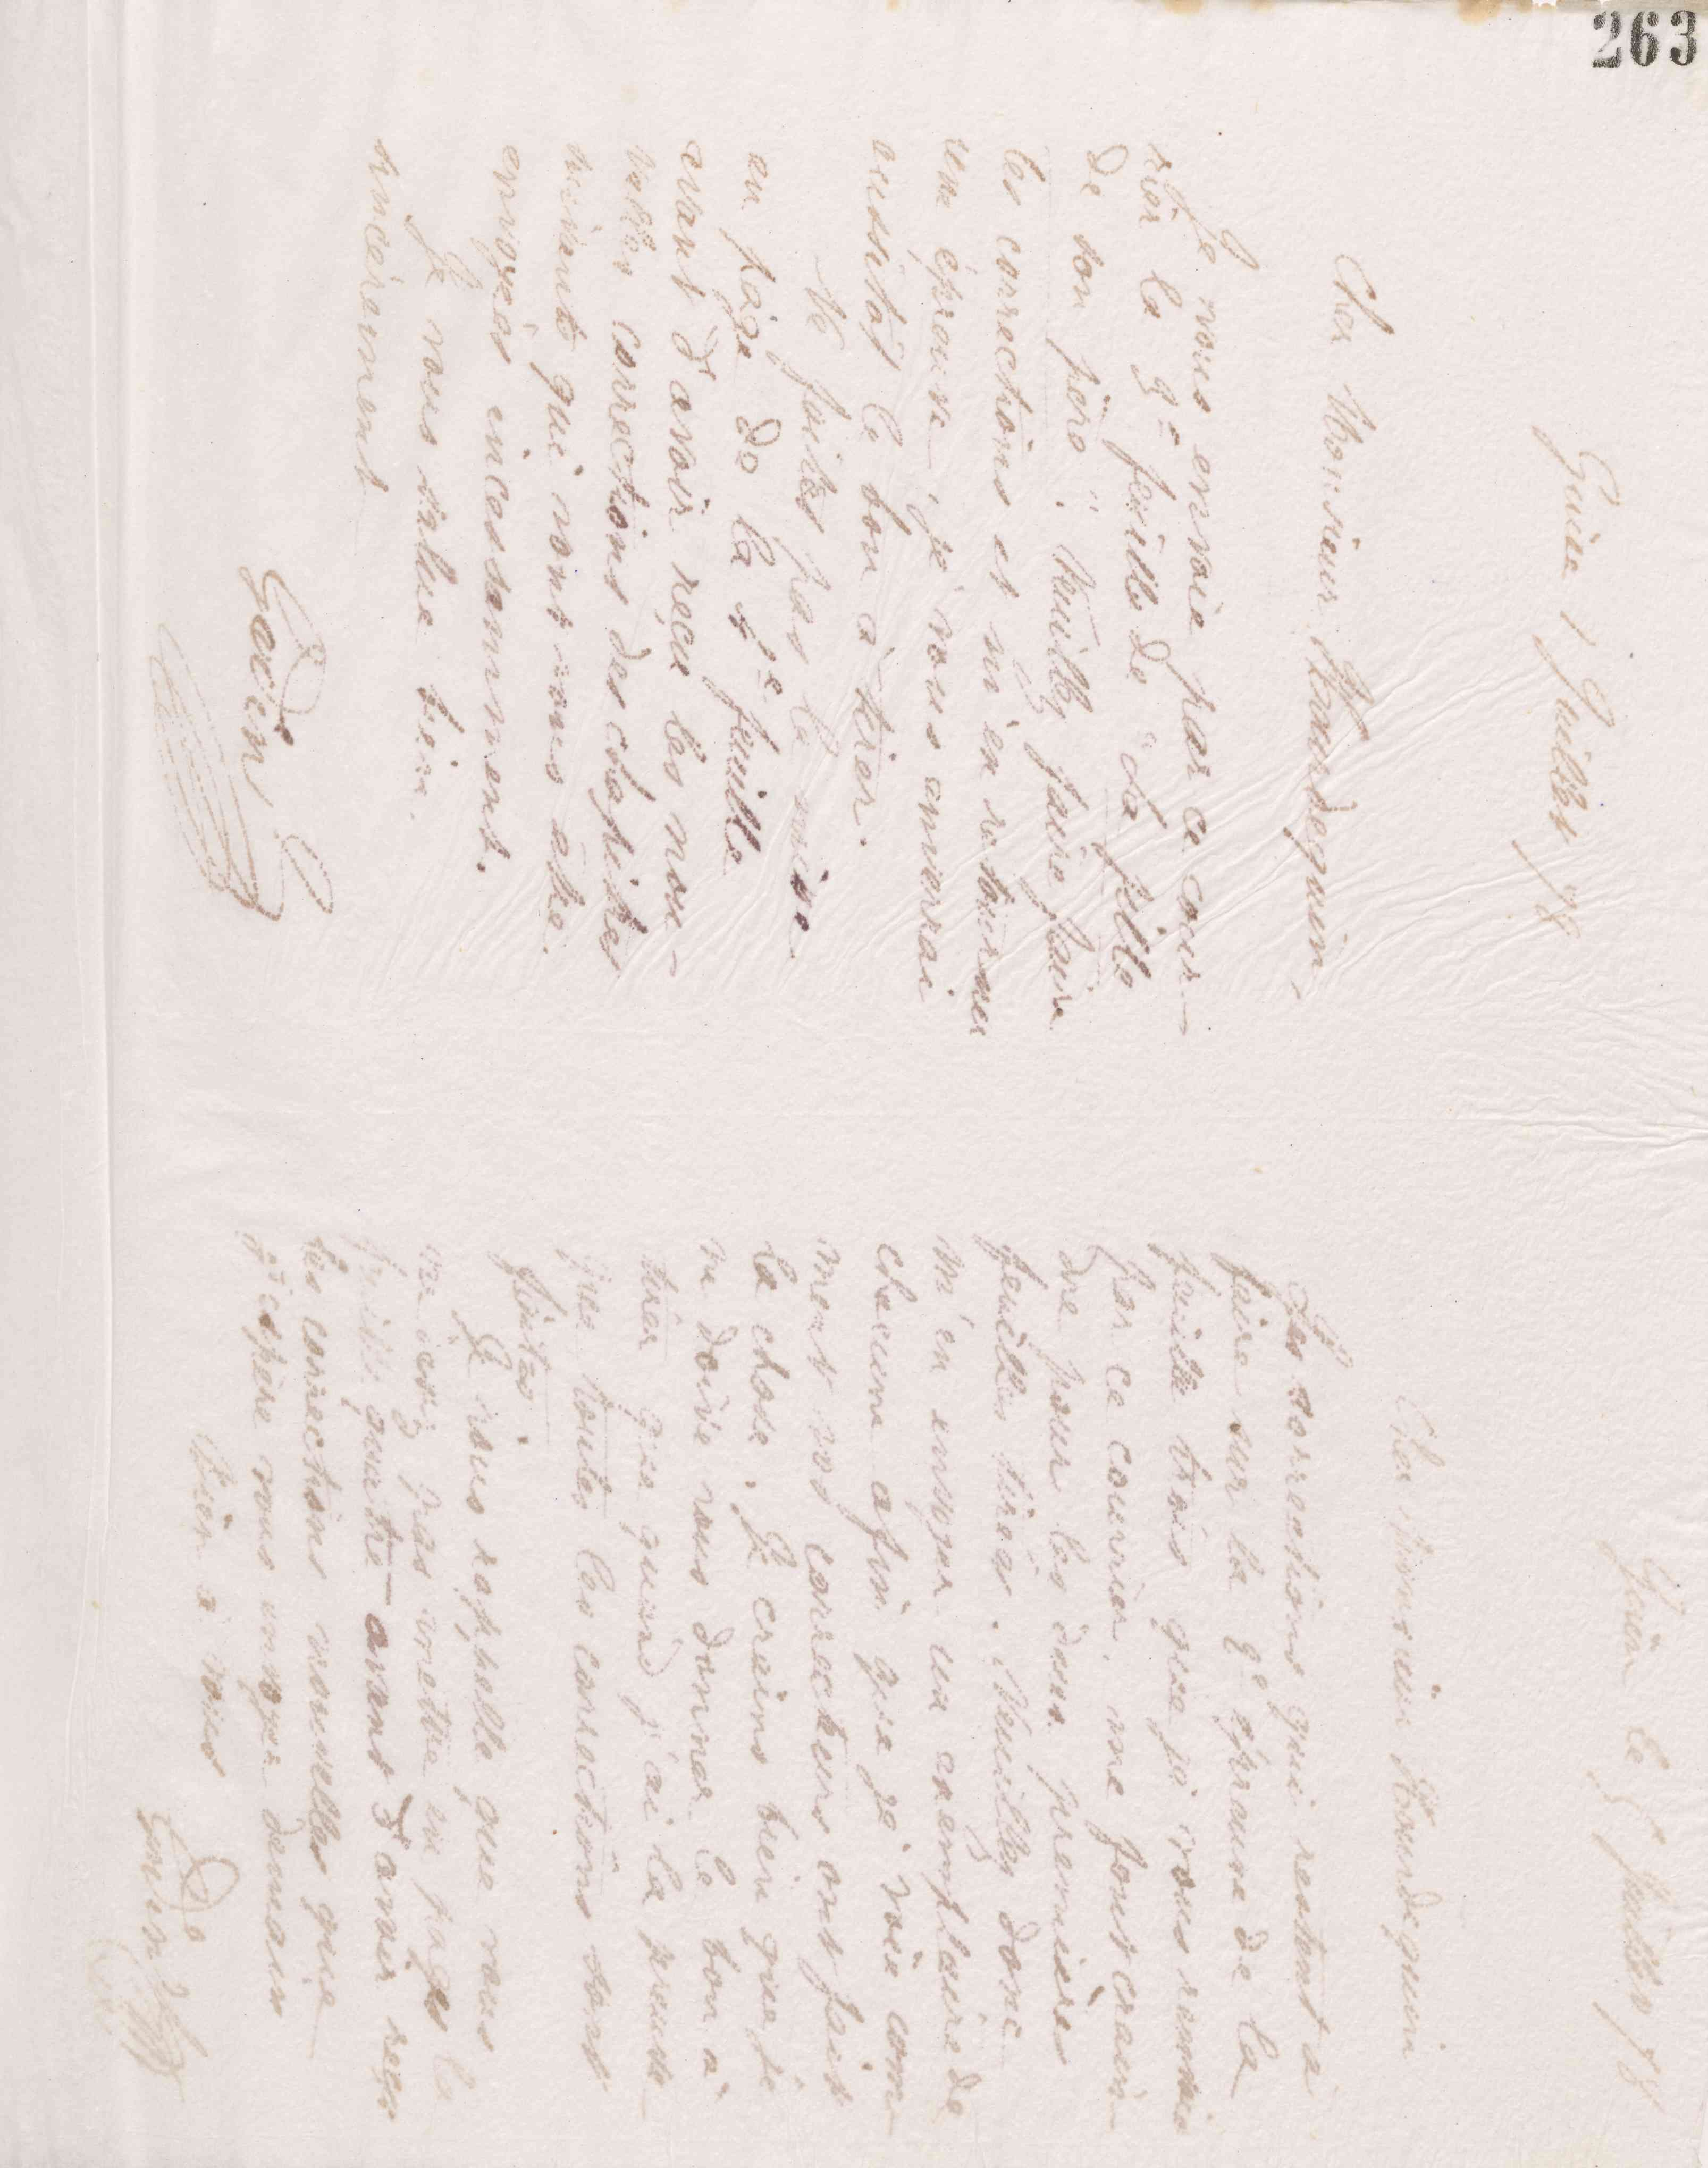 263
Guise 1 Juillet 78
Cher Monsieur Hourdequin,
Je vous envoie par ce cour-
rier la 3e feuille de "La fille
de son père". Veuillez faire faire
les corrections et m'en retourner
une épreuve, je vous enverrai
aussitôt le bon à tirer.
Ne faites pas la mise
en page de la 4e feuille
avant d'avoir reçu les nou-
velles corrections des chapitres
suivants qui vont vous être
envoyées incessamment.
Je vous salue bien
sincèrement
Godin
Guise le 5 Juillet 78
Cher Monsieur Hourdequin
Les corrections qui restent à
faire sur la 2e épreuve de la
feuille trois que je vous renvoie
par ce courrier, me font crain-
dre pour les deux premières
feuilles tirées. Veuillez donc
m'en envoyer un exemplaire de
chacune afin que je voie com-
ment vos correcteurs ont fait
la chose. Je crains bien que je
ne doive vous donner le bon à
tirer que quand j'ai la preuve
que toutes les corrections sont
faites.
Je vous rappelle que vous
ne devez pas mettre en pages la
feuille quatre avant d'avoir reçu
les corrections nouvelles que
j'espère vous envoyer demain
Bien à vous
Godin